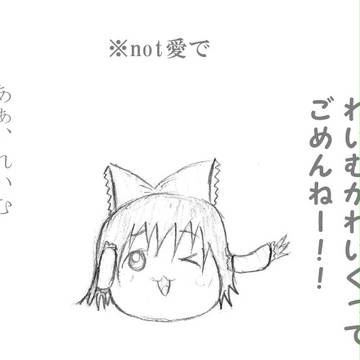 ※not愛で
れいむかわいくって
ごめんねー!!
あぁ、れいむ